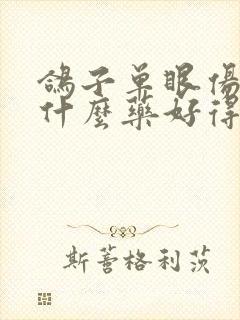 鴿子单眼傷
什麼藥好得
斯蓍格利茨